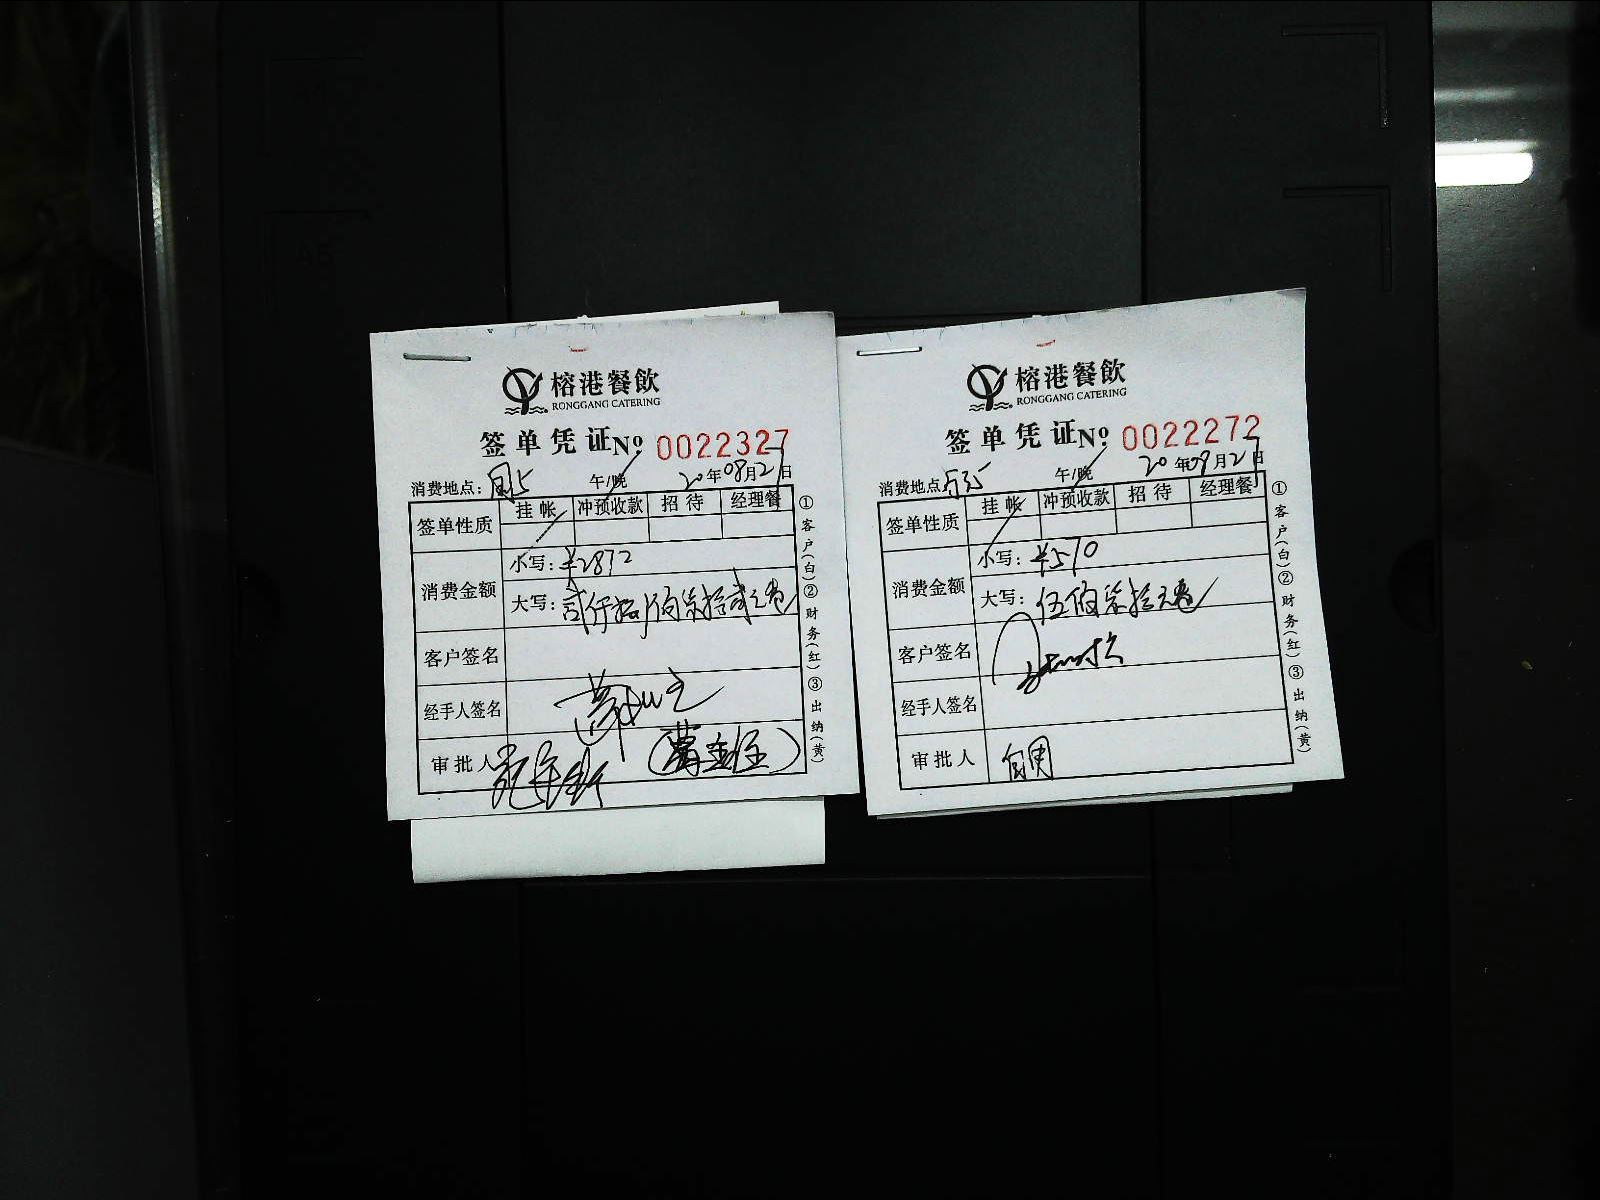 榕港餐飲
RONGGANG CATERING
签单凭证 № 0022327
消费地点: 午/晚 20年08月27日
签单性质 挂帐 冲预收款 招待 经理餐
消费金额
小写: ¥2872
大写: 贰仟捌佰柒拾贰元整
客户签名
经手人签名
审批人
①客户(白)②财务(红)③出纳(黄)
榕港餐飲
RONGGANG CATERING
签单凭证 № 0022272
消费地点 午/晚 20年09月27日
签单性质 挂帐 冲预收款 招待 经理餐
消费金额
小写: ¥570
大写: 伍佰柒拾元整
客户签名
经手人签名
审批人
①客户(白)②财务(红)③出纳(黄)
A5